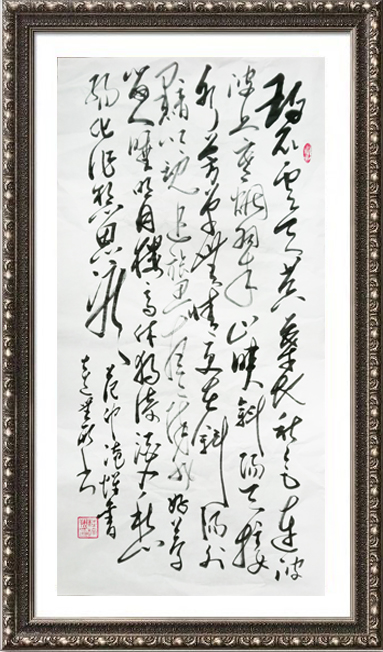 碧云天黄叶地秋色连波
波上寒烟翠山映斜阳天接
水芳草无情更在斜阳外
黯乡魂追旅思夜夜除非好梦
留人睡明月楼高休独倚酒入愁
肠化作相思泪
范仲淹